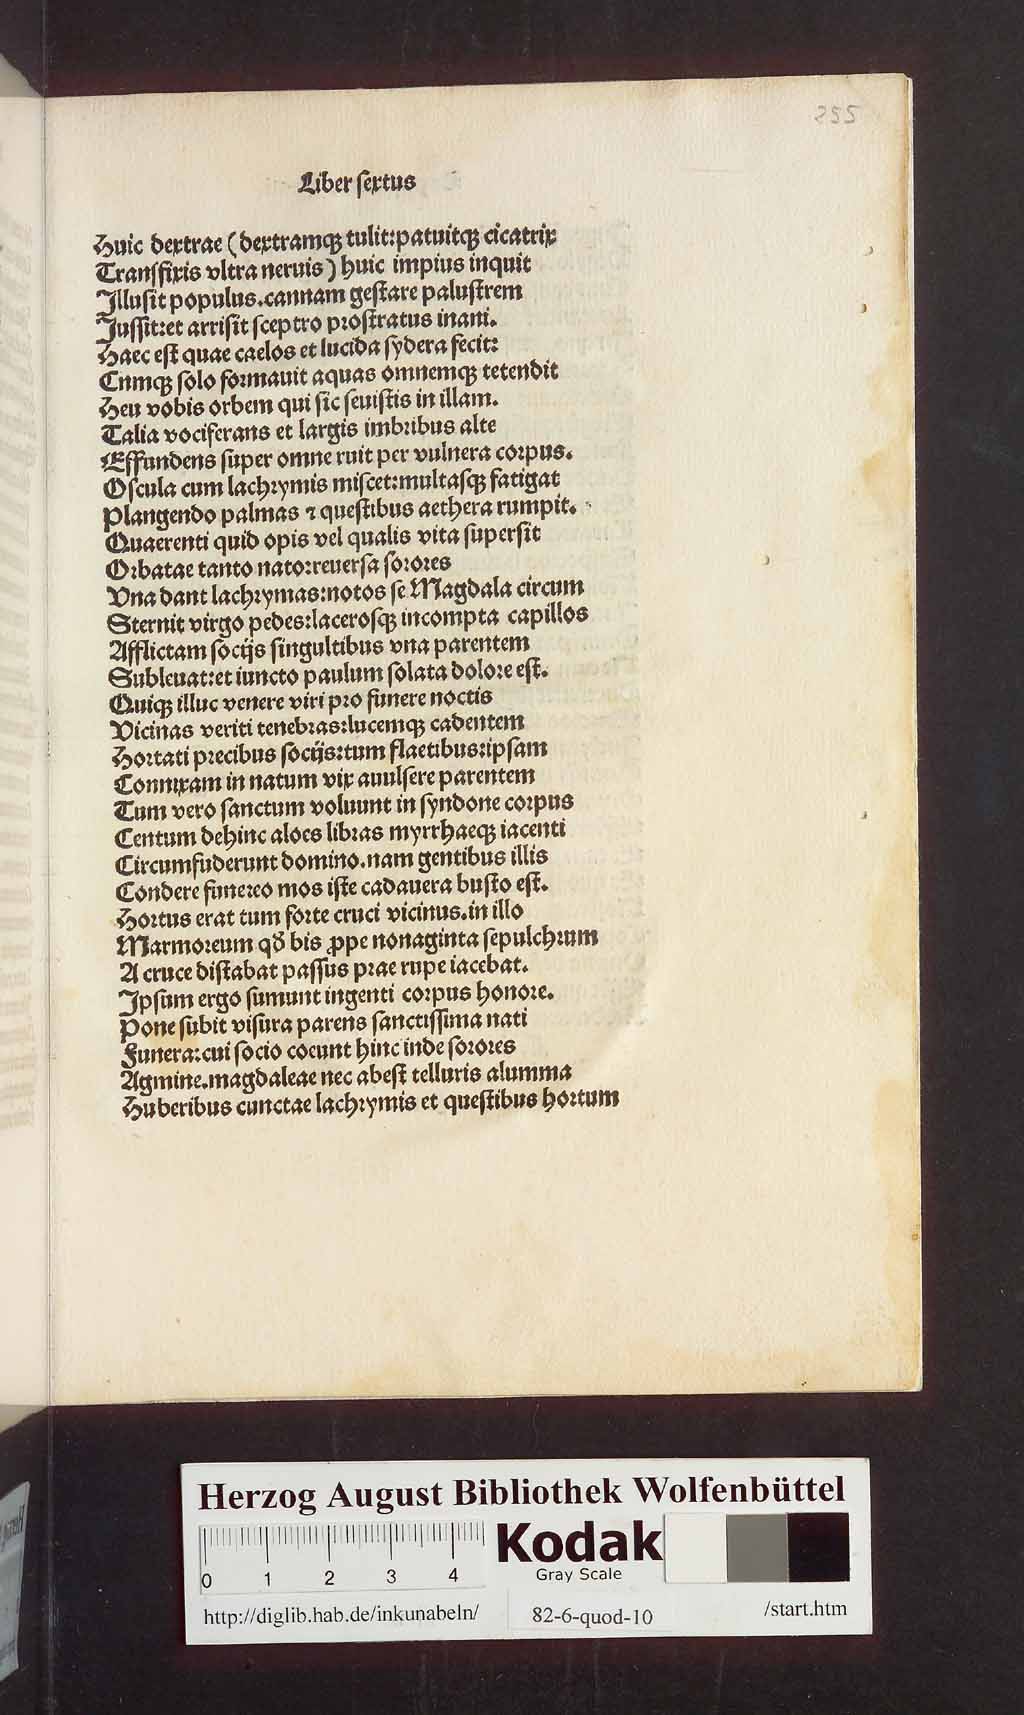 255
Liber sextus
Huic dextrae (dextramqꝫ tulit:patuitqꝫ cicatrix
Transfixis vltra neruis) huic impius inquit
Illusit populus.cannam gestare palustrem
Iussit:et arrisit sceptro prostratus inani.
Haec est quae caelos et lucida sydera fecit:
Cumqꝫ solo formauit aquas omnemqꝫ tetendit
Heu vobis orbem qui sic seuistis in illam.
Talia vociferans et largis imbribus alte
Effundens super omne ruit per vulnera corpus.
Oscula cum lachrymis miscet:multasqꝫ fatigat
Plangendo palmas ⁊ questibus aethera rumpit.
Quaerenti quid opis vel qualis vita supersit
Orbatae tanto nato:reuersa sorores
Vna dant lachrymas:notos se Magdala circum
Sternit virgo pedes:lacerosqꝫ incompta capillos
Afflictam socijs singultibus vna parentem
Subleuat:et iuncto paulum solata dolore est.
Quiqꝫ illuc venere viri pro funere noctis
Vicinas veriti tenebras:lucemqꝫ cadentem
Hortati precibus socijs:tum flaetibus:ipsam
Connixam in natum vix auulsere parentem
Tum vero sanctum voluunt in syndone corpus
Centum dehinc aloes libras myrrhaeqꝫ iacenti
Circumfuderunt domino.nam gentibus illis
Condere funereo mos iste cadauera busto est.
Hortus erat tum forte cruci vicinus.in illo
Marmoreum qď bis ꝓpe nonaginta sepulchrum
A cruce distabat passus prae rupe iacebat.
Ipsum ergo sumunt ingenti corpus honore.
Pone subit visura parens sanctissima nati
Funera:cui socio coeunt hinc inde sorores
Agmine.magdaleae nec abest telluris alumma
Huberibus cunctae lachrymis et questibus hortum
Herzog August Bibliothek Wolfenbüttel
0 1 2 3 4
Kodak
Gray Scale
http://diglib.hab.de/inkunabeln/ 82-6-quod-10 /start.htm